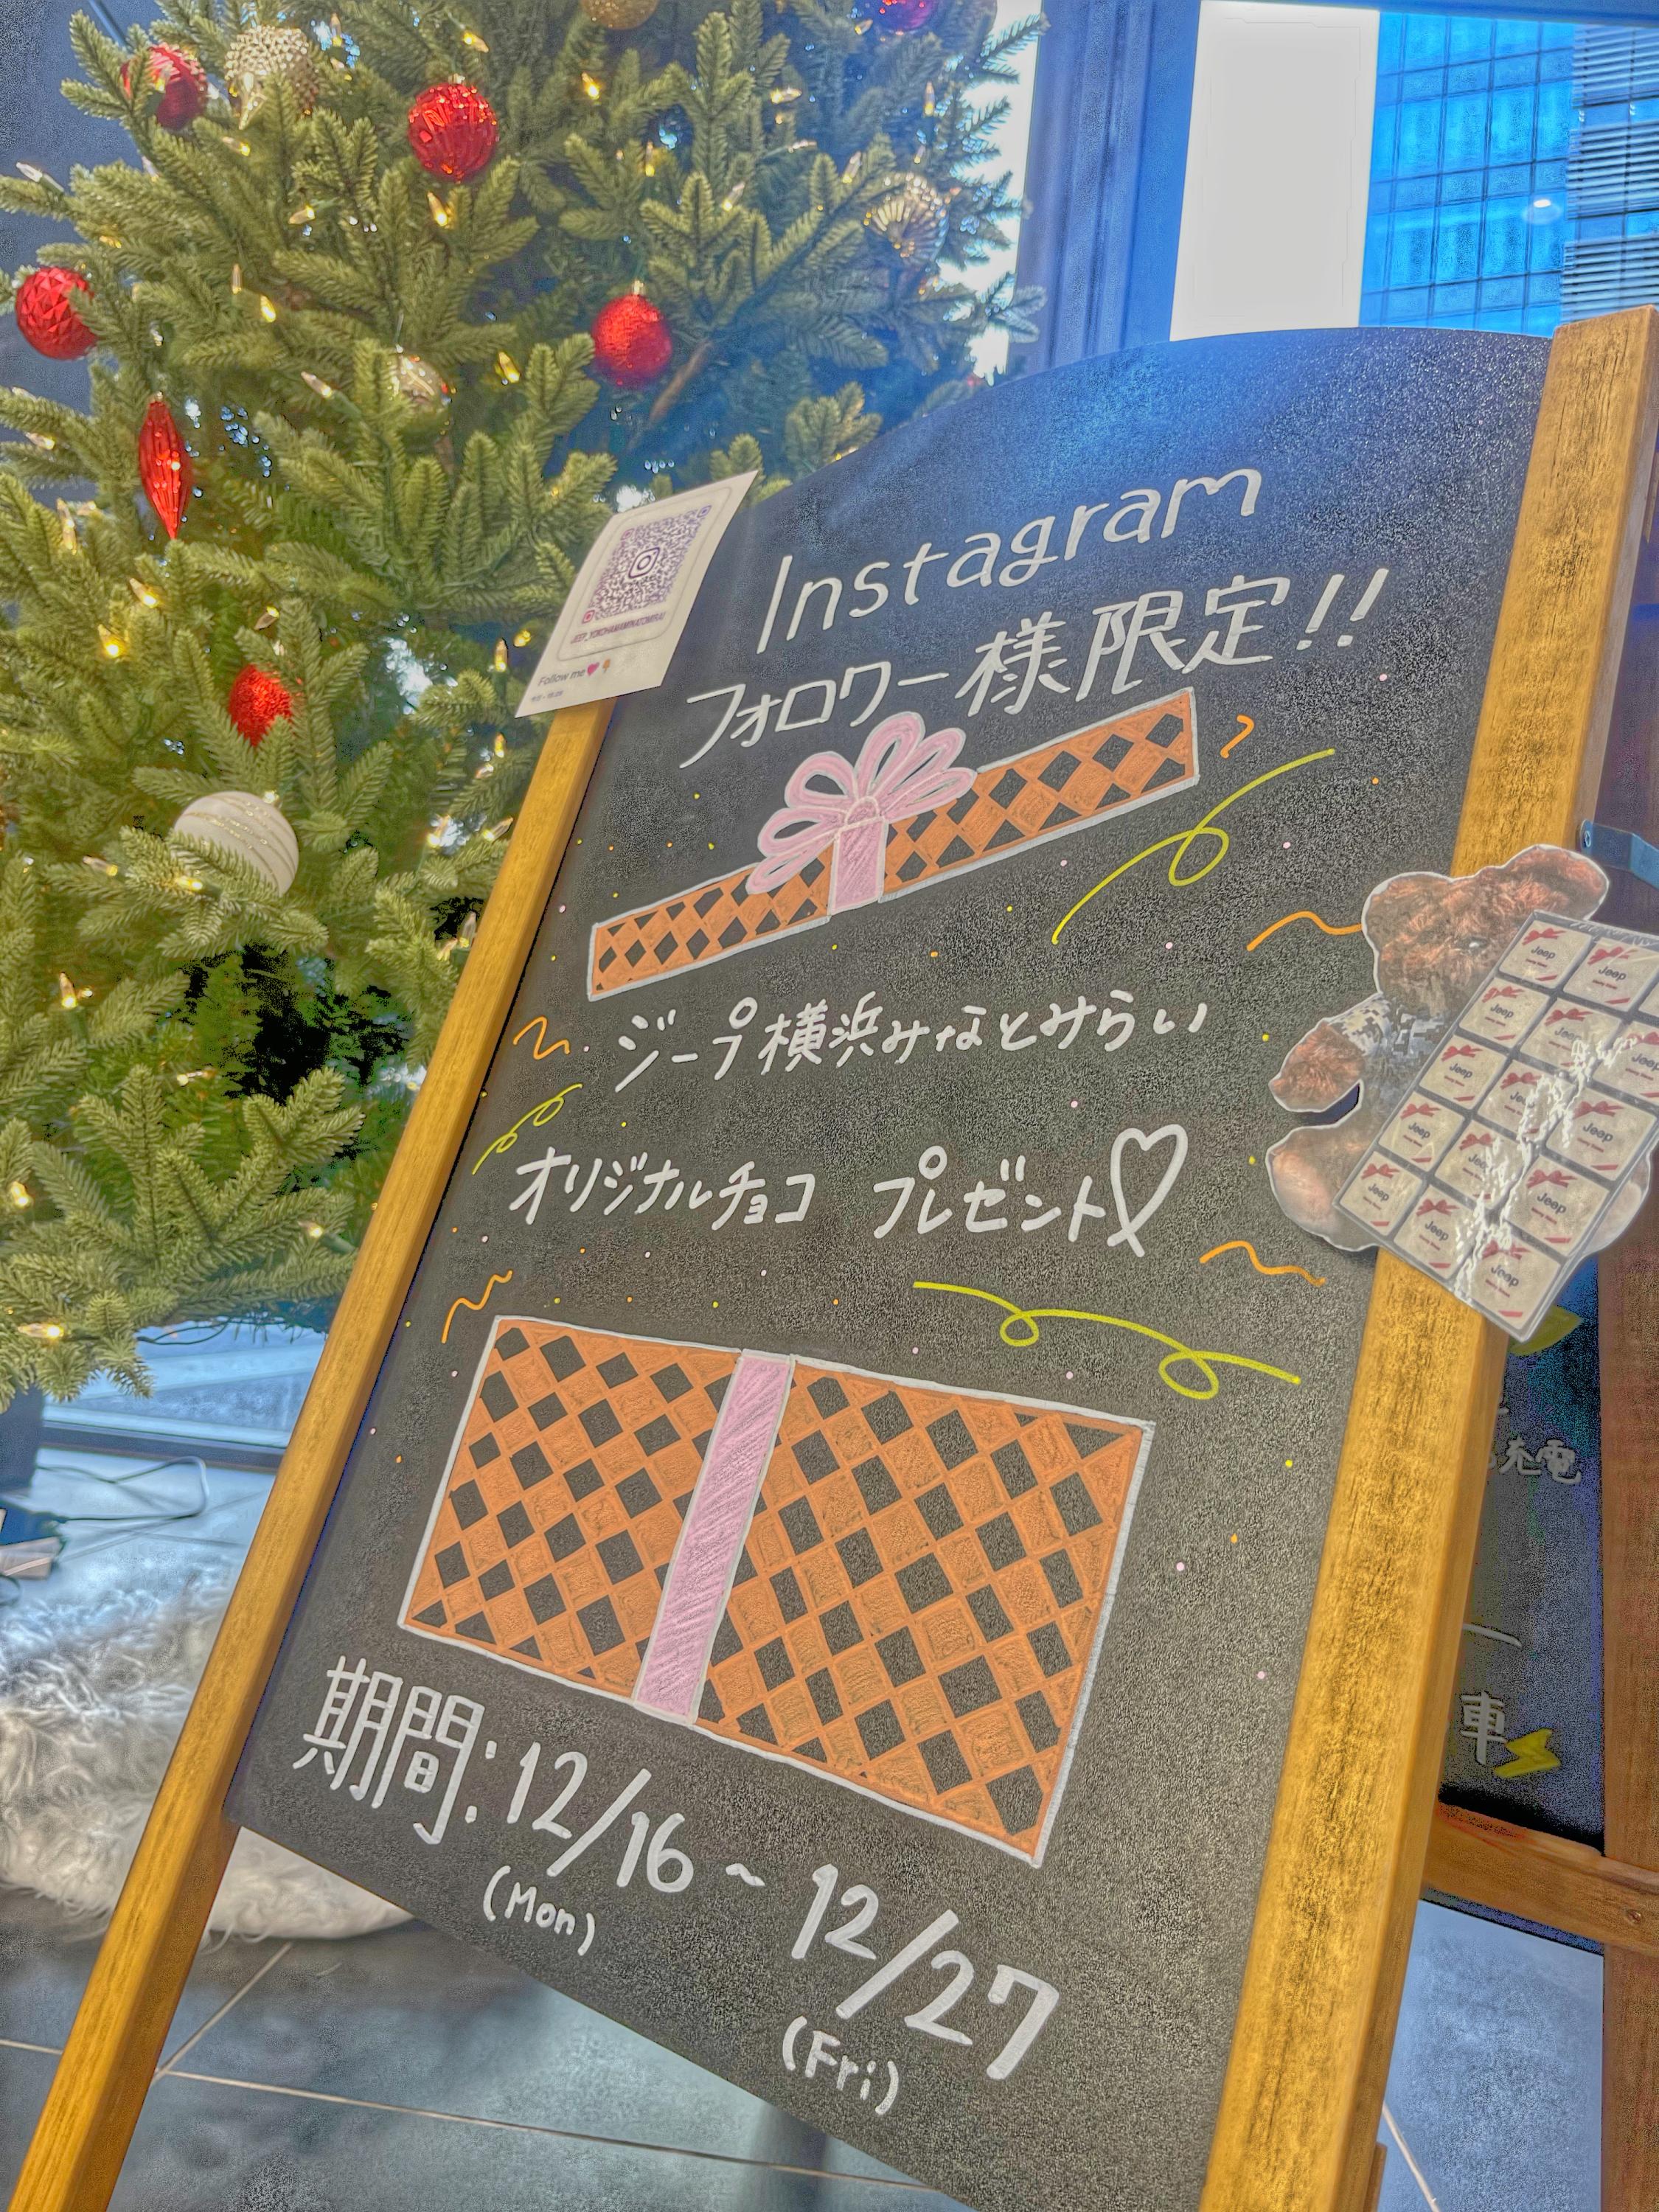 Instagram
フォロワー様限定!!
JEEP_YOKOHAMAMINATOMIRAI
Follow me
ジープ横浜みなとみらい
オリジナルチョコ プレゼント
期間:12/16~12/27
(Mon)
(Fri)
Jeep
Jeep
Jeep
Jeep
Jeep
Jeep
Jeep
Jeep
Jeep
Jeep
Jeep
Jeep
充電
車